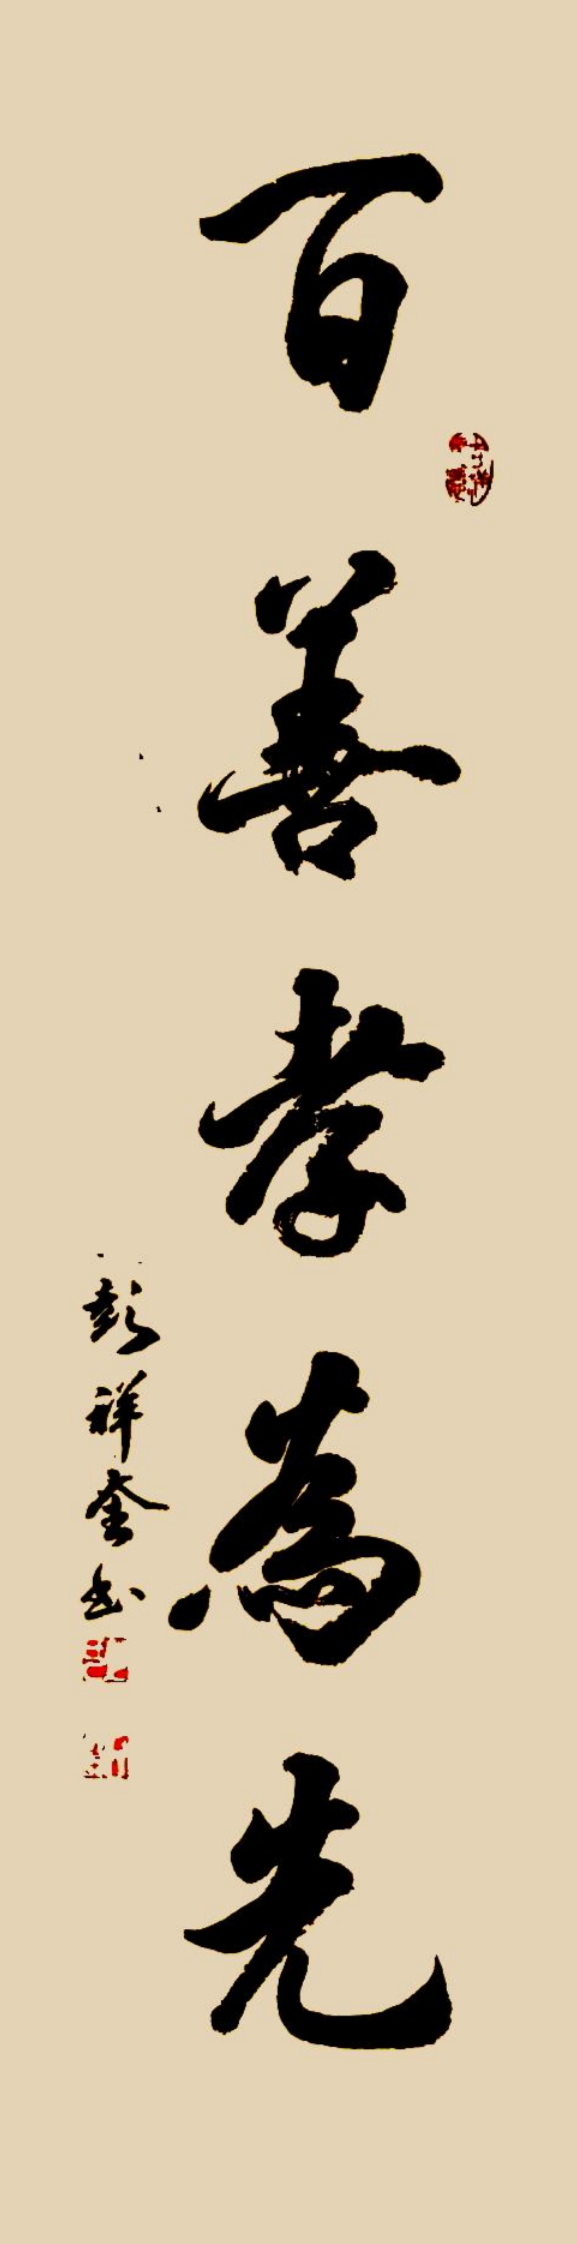 百善孝為先
彭祥奎书